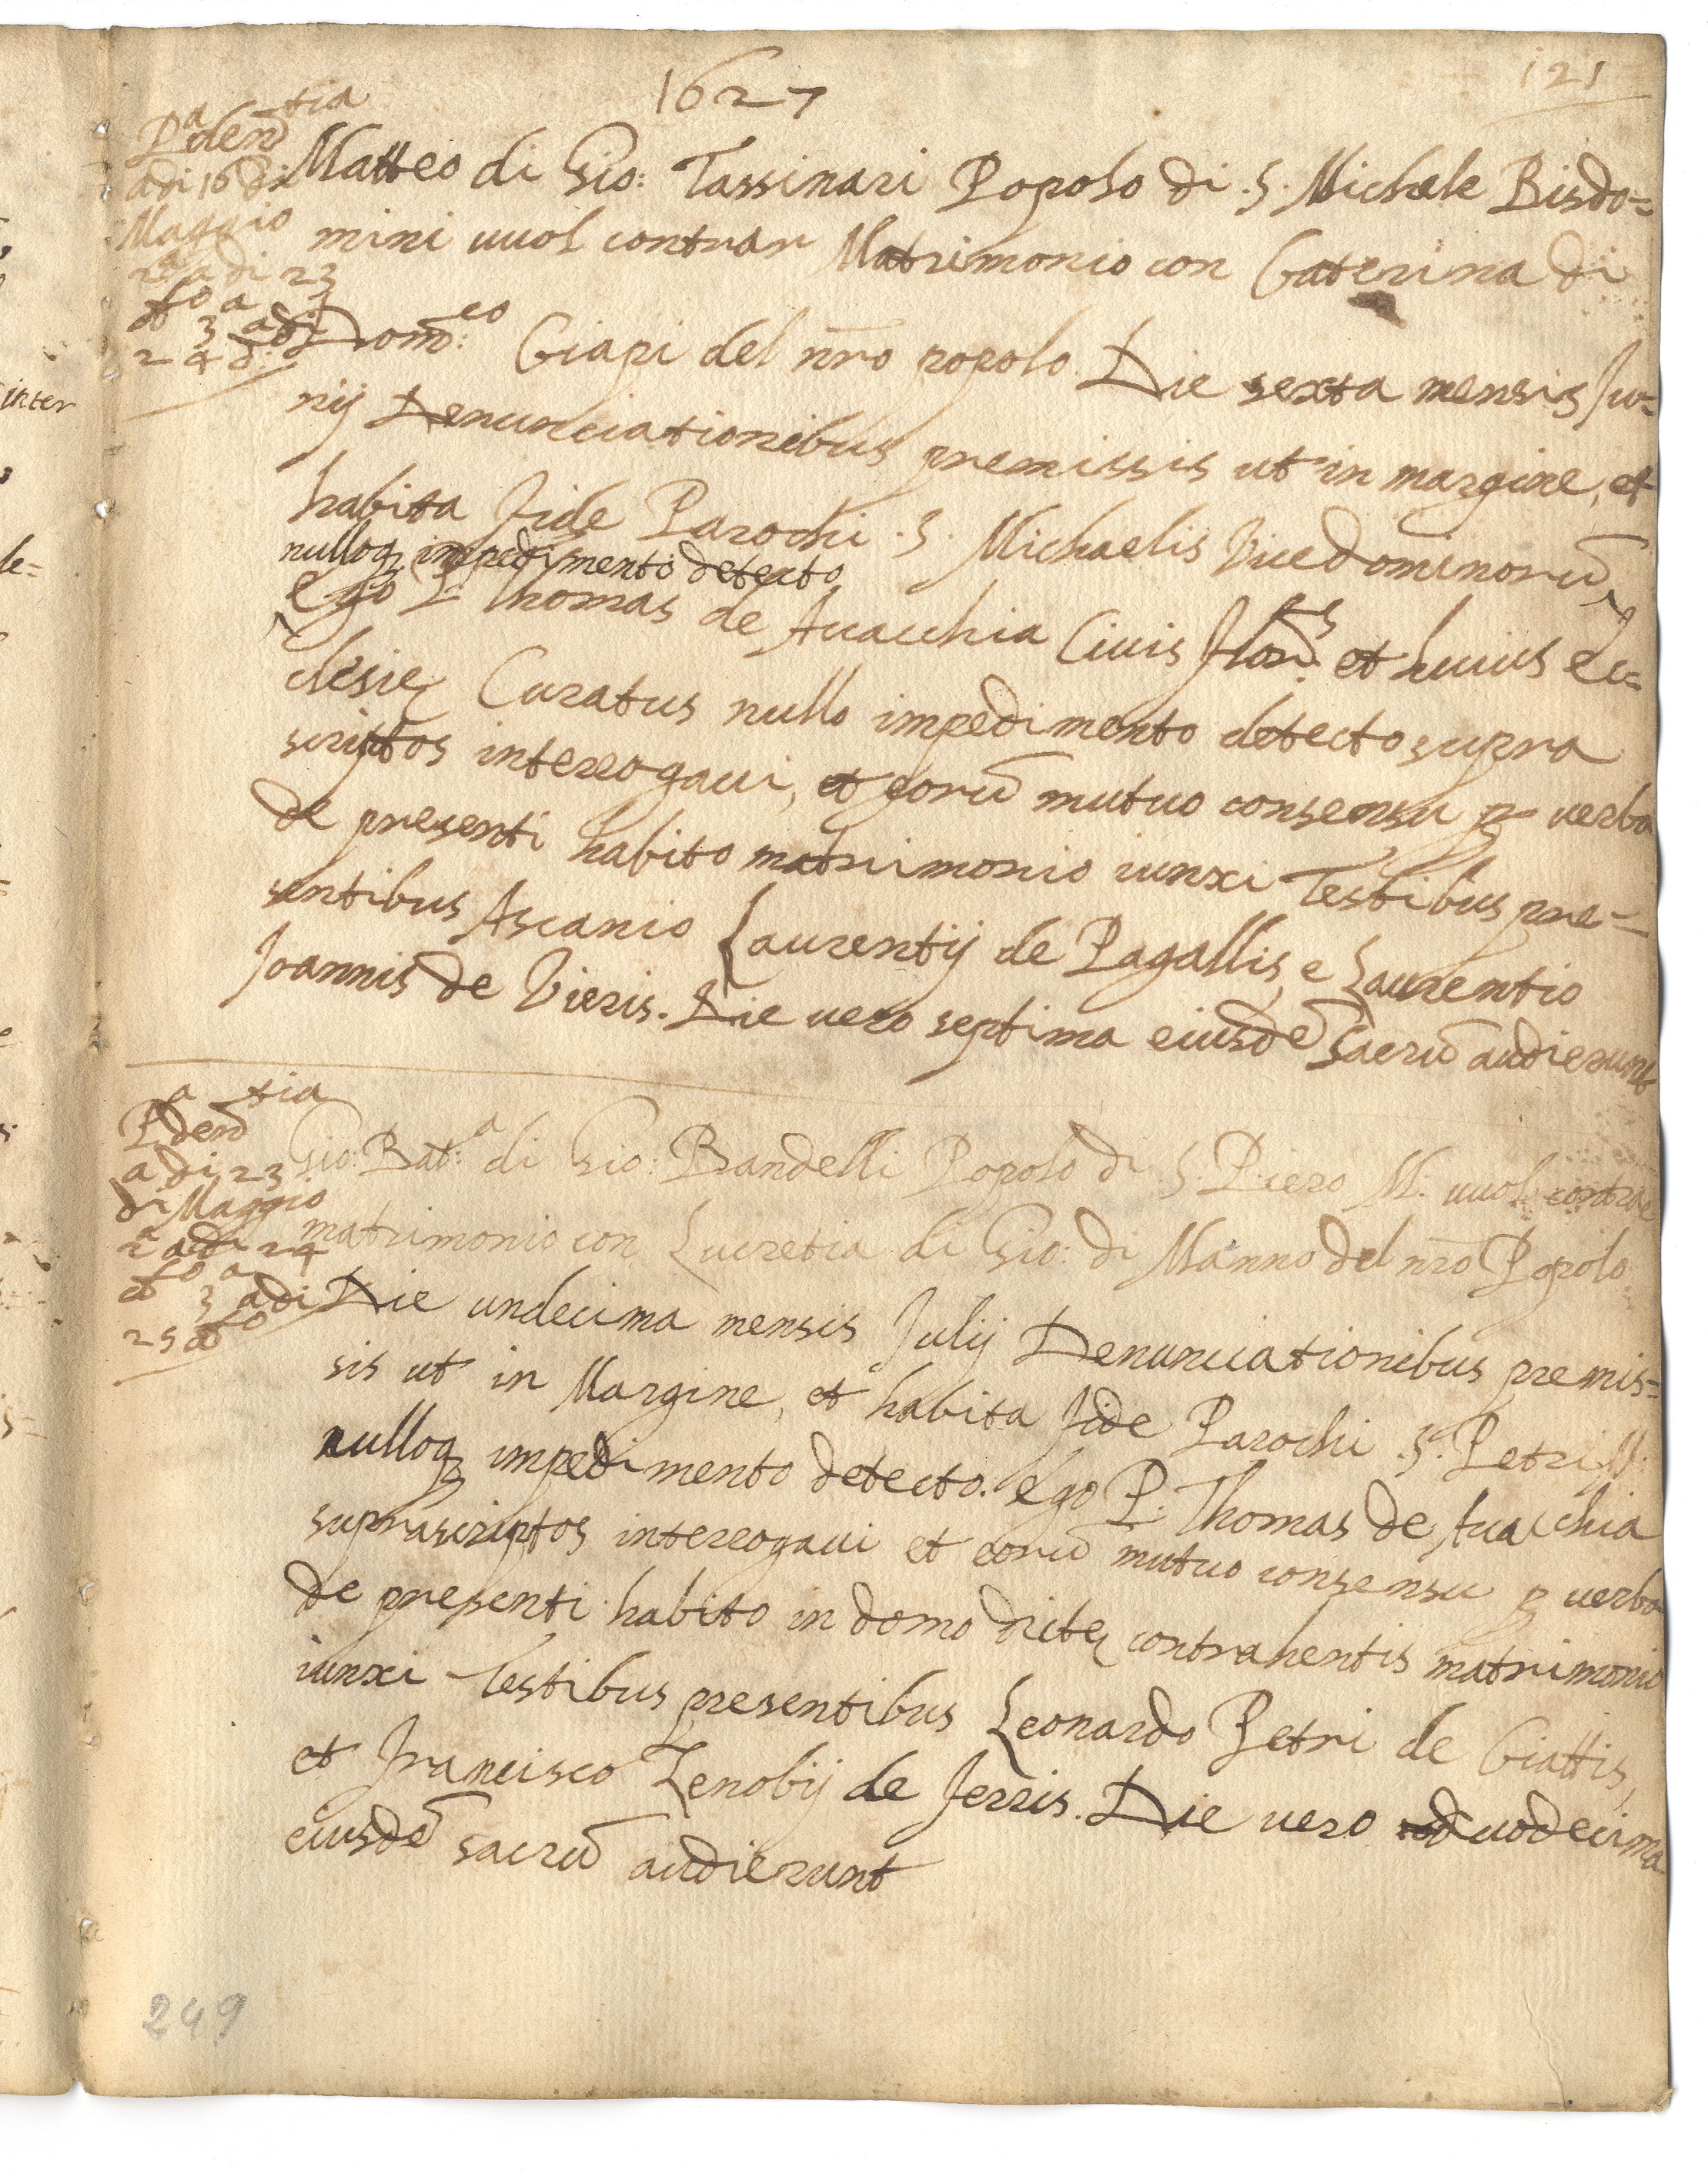 1627
121
P.a den.tia
adi 16 di
Maggio
2.a adi 23
d.o 3.a adi
24 d.
Matteo di Gio: Tassinari Popolo di S. Michele Bisdo=
mini uuol contrar Matrimonio con Caterina di
Dom:co Ciapi del nr̃o popolo Die sexta mensis Ju=
nij Denunciationibus premissis ut in margine, et
habita fide Parochi S. Michaelis Vicedominorũ
nulloq; impedimento detecto
ego P. Thomas de Auacchia Ciuis Flor.s et huius ec=
clesię Curatus nullo impedimento detecto supra
scriptos interrogaui, et eorũ mutuo consensu p uerba
de presenti habito matrimonio iunxi Testibus pre=
sentibus Ascanio Laurentij de Pagallis, e Laurentio
Joannis de Vieris. Die uero septima eiusdẽ Sacrũ audierunt
P.a den.tia
adi 23
di Maggio
2.a adi 24
d.o 3.a adi
25 d.o
Gio: Bat:a di Gio: Bandelli Popolo di S. Piero M. uuol contrar
matrimonio con Lucretia di Gio: di Manno del nr̃o Popolo
Die undecima mensis Julij Denunciationibus premis=
sis ut in Margine, et habita fide Parochi S. Petri M.
nulloq; impedimento detecto. ego P. Thomas de Auacchia
suprascriptos interrogaui et eorũ mutuo consensu p uerba
de presenti habito in domo dictę contrahentis matrimonio
iunxi Testibus presentibus Leonardo Petri de Ciattis,
et Francisco Zenobij de Ferris. Die uero duodecima
eiusdẽ sacrũ audierunt
249